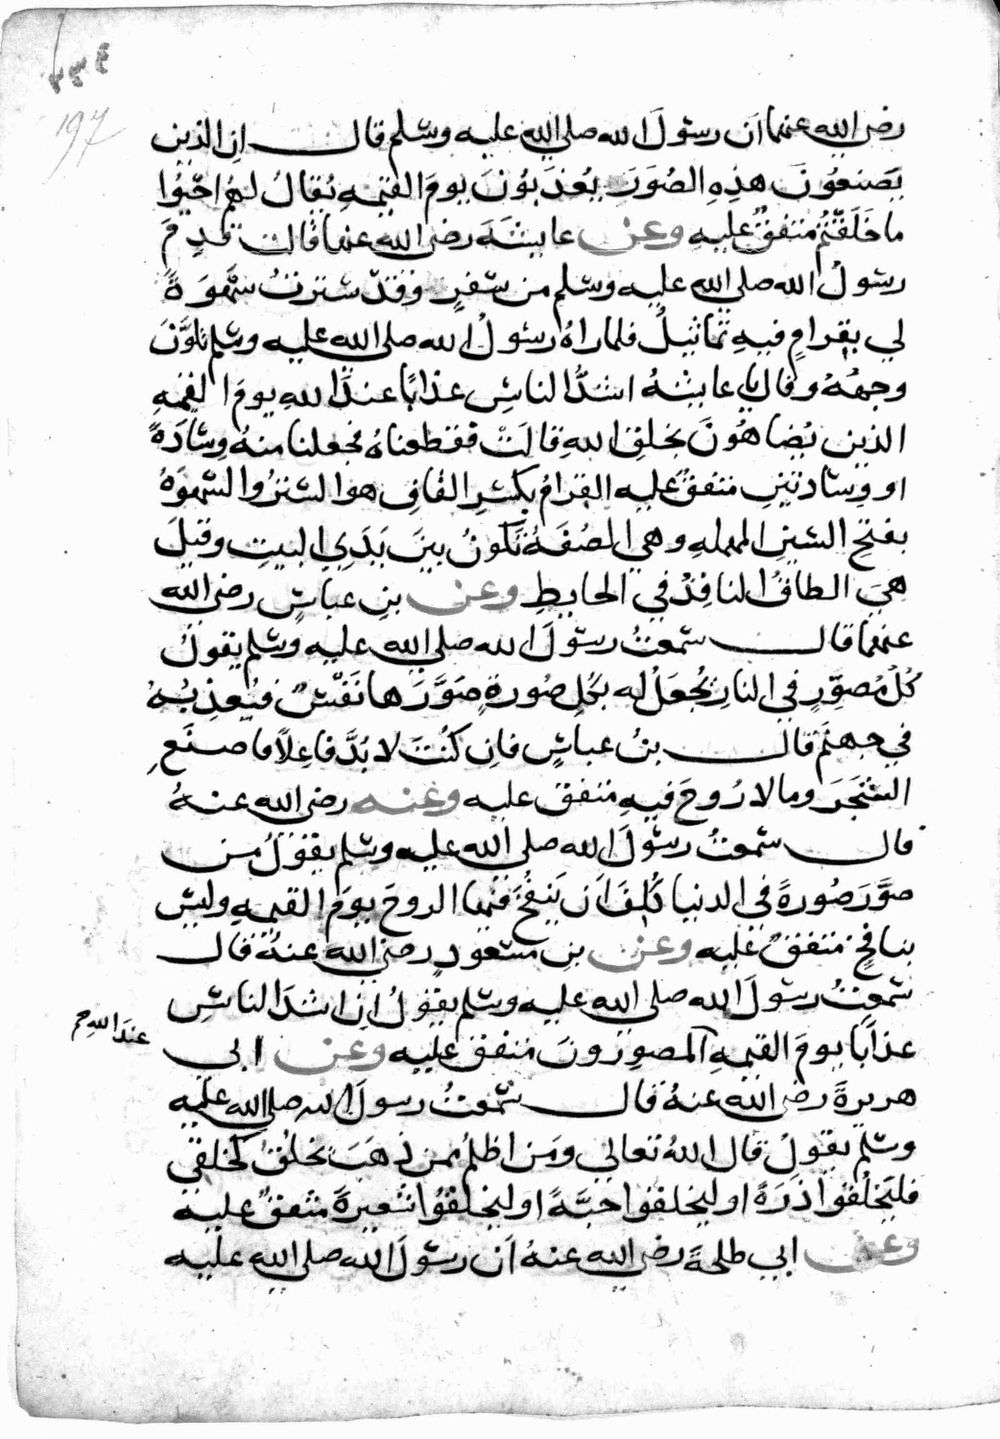 ١٩٧
رضي الله عنهما اَن رسُولَ الله صلى الله عليه وسَلم قال اِن الذين
يَصنعُونَ هذِهِ الصُوَرَ يُعذبُونَ يومَ القيمهِ يُقالُ لهُم احْيُوا
ما خَلَقْتُم متفقٌ عليهِ وعن عايشَةَ رضى الله عنها قالت قدِمَ
رسُولُ الله صلى الله عليه وسَلم من سَفرٍ وقدْ سَترتُ سَهْوَةً
لي بقِرامٍ فيهِ تماثيلُ فلما راهُ رسُولُ الله صلى الله عليه وسَلم تلوَّنَ
وجهُهُ وقال يا عايشةُ اشدُّ الناسِ عذابًا عندَ اللهِ يومَ القيمهِ
الذين يُضاهُونَ بخلقِ اللهِ قالَتْ فقطعناهُ فجعلنا منهُ وِسَادَةً
او وِسَادتينِ متفقٌ عليه القِرامُ بكسْرِ القافِ هو السِترُ والسَهوَةُ
بفتحِ السينِ المهملهِ وهي الصُفَةُ تكونُ بينَ يَدَي البيتِ وقيلَ
هيَ الطاقُ النافِذُ في الحايطِ وعن بنِ عباسٍ رضى الله
عنهما قال سَمعتُ رسُولَ الله صلى الله عليه وسَلم يقولُ
كُلُ مُصوِّرٍ في النارِ يُجعَلُ له بكلِ صُورةٍ صَوَّرَها نَفْسٌ فيُعذِبُهُ
في جهنمَ قال بنُ عباسٍ فاِن كُنْتَ لا بُدَّ فاعِلًا فاصنَعِ
الشَجَرَ وما لا رُوحَ فيهِ متفق عليه وعَنه رضى الله عنهُ
قال سَمعتُ رسُولَ الله صلى الله عليه وسَلم يقولُ من
صوَّرَ صُورةً في الدنيا كُلِفَ اَن يَنفُخَ فيها الروحَ يومَ القيمهِ وليسَ
بنافخٍ متفقٌ عليه وعن بنِ مسعودٍ رضى الله عنهُ قال
سَمعتُ رسُولَ الله صلى الله عليه وسَلم يقولُ اِن اشدَ الناسِ
عذابًا يومَ القيمهِ المصوِرونَ متفق عليه وعن ابى
عندَ اللهِ
هريرةَ رضى الله عنهُ قال سَمعتُ رسولَ الله صلى الله عليه
وسَلم يقولُ قال اللهُ تعالى ومَن اظلمُ ممن ذهَبَ يخلُقُ كخلقي
فليَخلُقوا ذرَةً او ليخلقوا حبَّةً او ليخلُقُوا شعيرةً متفقٌ عليه
وعن ابي طلحةَ رضى الله عنهُ اَن رسُولَ الله صلى الله عليه